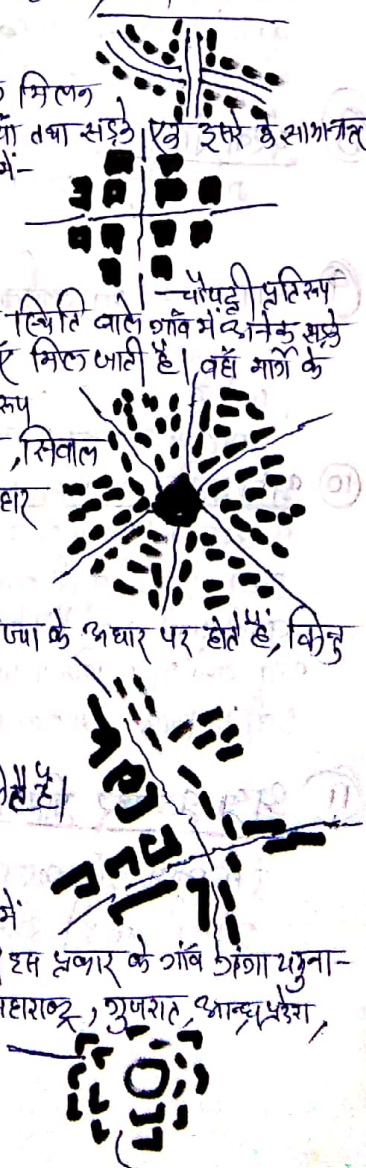 मिलन
तथा सड़कें एक दूसरे के सामान्तर
में-
चौपट्टी प्रतिरूप
स्थिति वाले गाँव में अनेक सड़कें
मिल जाती है। वहाँ मार्गो के
रूप
, सिवाल
हार
ज्या के अधार पर होते हैं, किन्तु
है।
में
इस प्रकार के गाँव गंगा यमुना-
महाराष्ट्र, गुजरात, आन्ध्रप्रदेश,